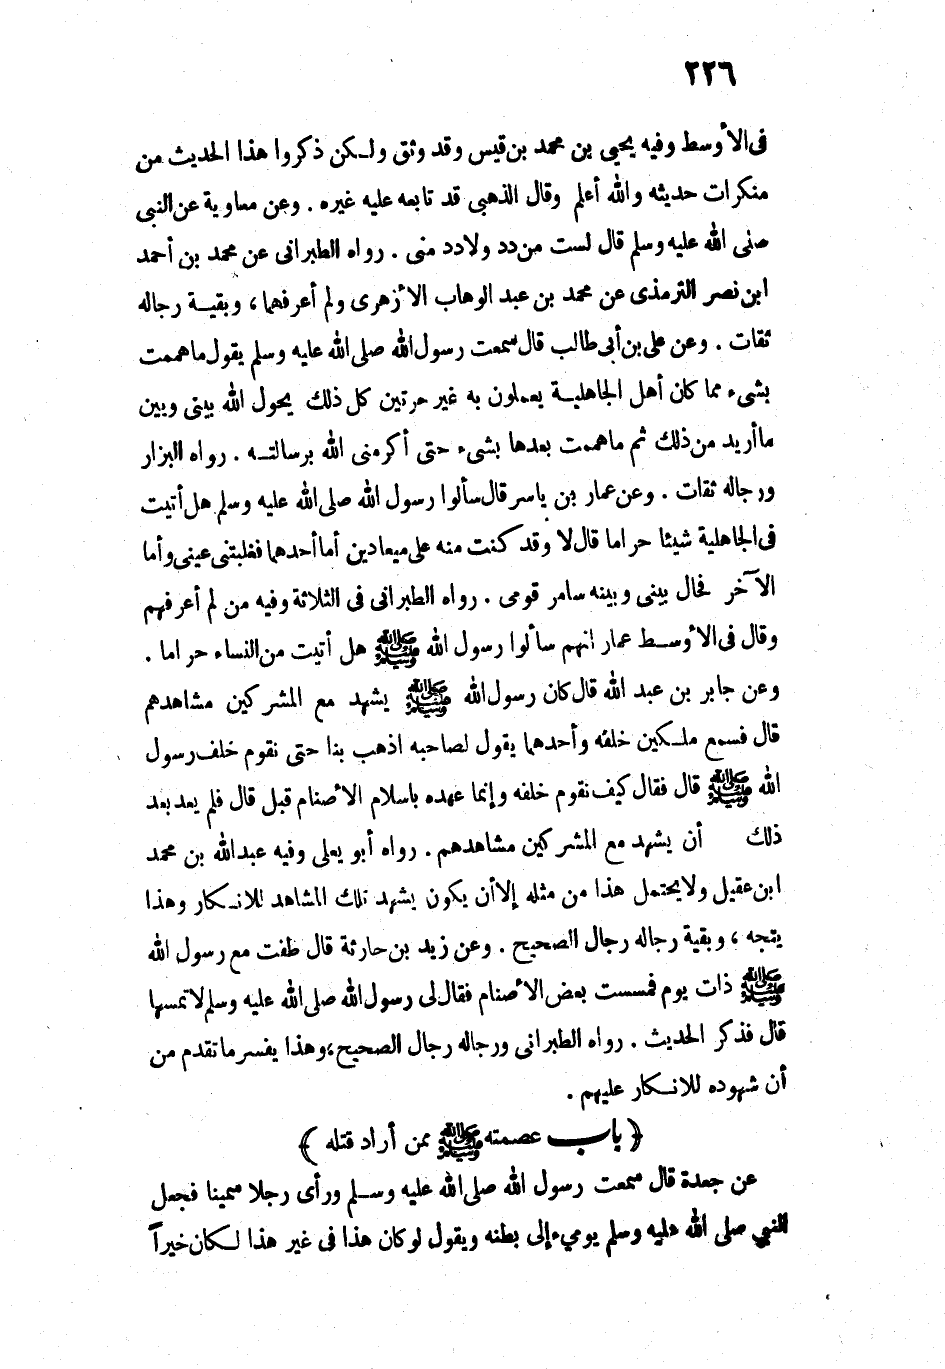 ٢٢٦
فى الأوسط وفيه يحيى بن محمد بن قيس وقد وثق ولكن ذكروا هذا الحديث من
منكرات حديثه والله أعلم وقال الذهبى قد تابعه عليه غيره . وعن معاوية عن النبى
صلى الله عليه وسلم قال لست من دد ولادد منى . رواه الطبرانى عن محمد بن أحمد
ابن نصر الترمذى عن محمد بن عبد الوهاب الأزهرى ولم أعرفهما ، وبقية رجاله
ثقات . وعن على بن أبى طالب قال سمعت رسول الله صلى الله عليه وسلم يقول ماهممت
بشىء مما كان أهل الجاهلية يعملون به غير مرتين كل ذلك يحول الله بينى وبين
ماأريد من ذلك ثم ماهممت بعدها بشىء حتى أكرمنى الله برسالته . رواه البزار
ورجاله ثقات . وعن عمار بن ياسر قال سألوا رسول الله صلى الله عليه وسلم هل أتيت
فى الجاهلية شيئا حراما قال لا وقد كنت منه على ميعادين أما أحدهما فغلبتنى عينى وأما
الآخر فحال بينى وبينه سامر قومى . رواه الطبرانى فى الثلاثة وفيه من لم أعرفهم
وقال فى الأوسط عمار انهم سألوا رسول الله ﷺ هل أتيت من النساء حراما .
وعن جابر بن عبد الله قال كان رسول الله ﷺ يشهد مع المشركين مشاهدهم
قال فسمع ملكين خلفه وأحدهما يقول لصاحبه اذهب بنا حتى نقوم خلف رسول
الله ﷺ قال فقال كيف نقوم خلفه وإنما عهده باسلام الأصنام قبل قال فلم يعد بعد
ذلك أن يشهد مع المشركين مشاهدهم . رواه أبو يعلى وفيه عبدالله بن محمد
ابن عقيل ولا يحتمل هذا من مثله إلا أن يكون يشهد تلك المشاهد للانكار وهذا
يتجه ، وبقية رجاله رجال الصحيح . وعن زيد بن حارثة قال طفت مع رسول الله
ﷺ ذات يوم فمسست بعض الأصنام فقال لى رسول الله صلى الله عليه وسلم لاتمسها
قال فذكر الحديث . رواه الطبرانى ورجاله رجال الصحيح ، وهذا يفسر ماتقدم من
أن شهوده للانكار عليهم .
﴿ باب عصمته ﷺ ممن أراد قتله ﴾
عن جعدة قال سمعت رسول الله صلى الله عليه وسلم ورأى رجلا سمينا فجعل
النبي صلى الله عليه وسلم يوميء إلى بطنه ويقول لو كان هذا فى غير هذا لكان خيراً